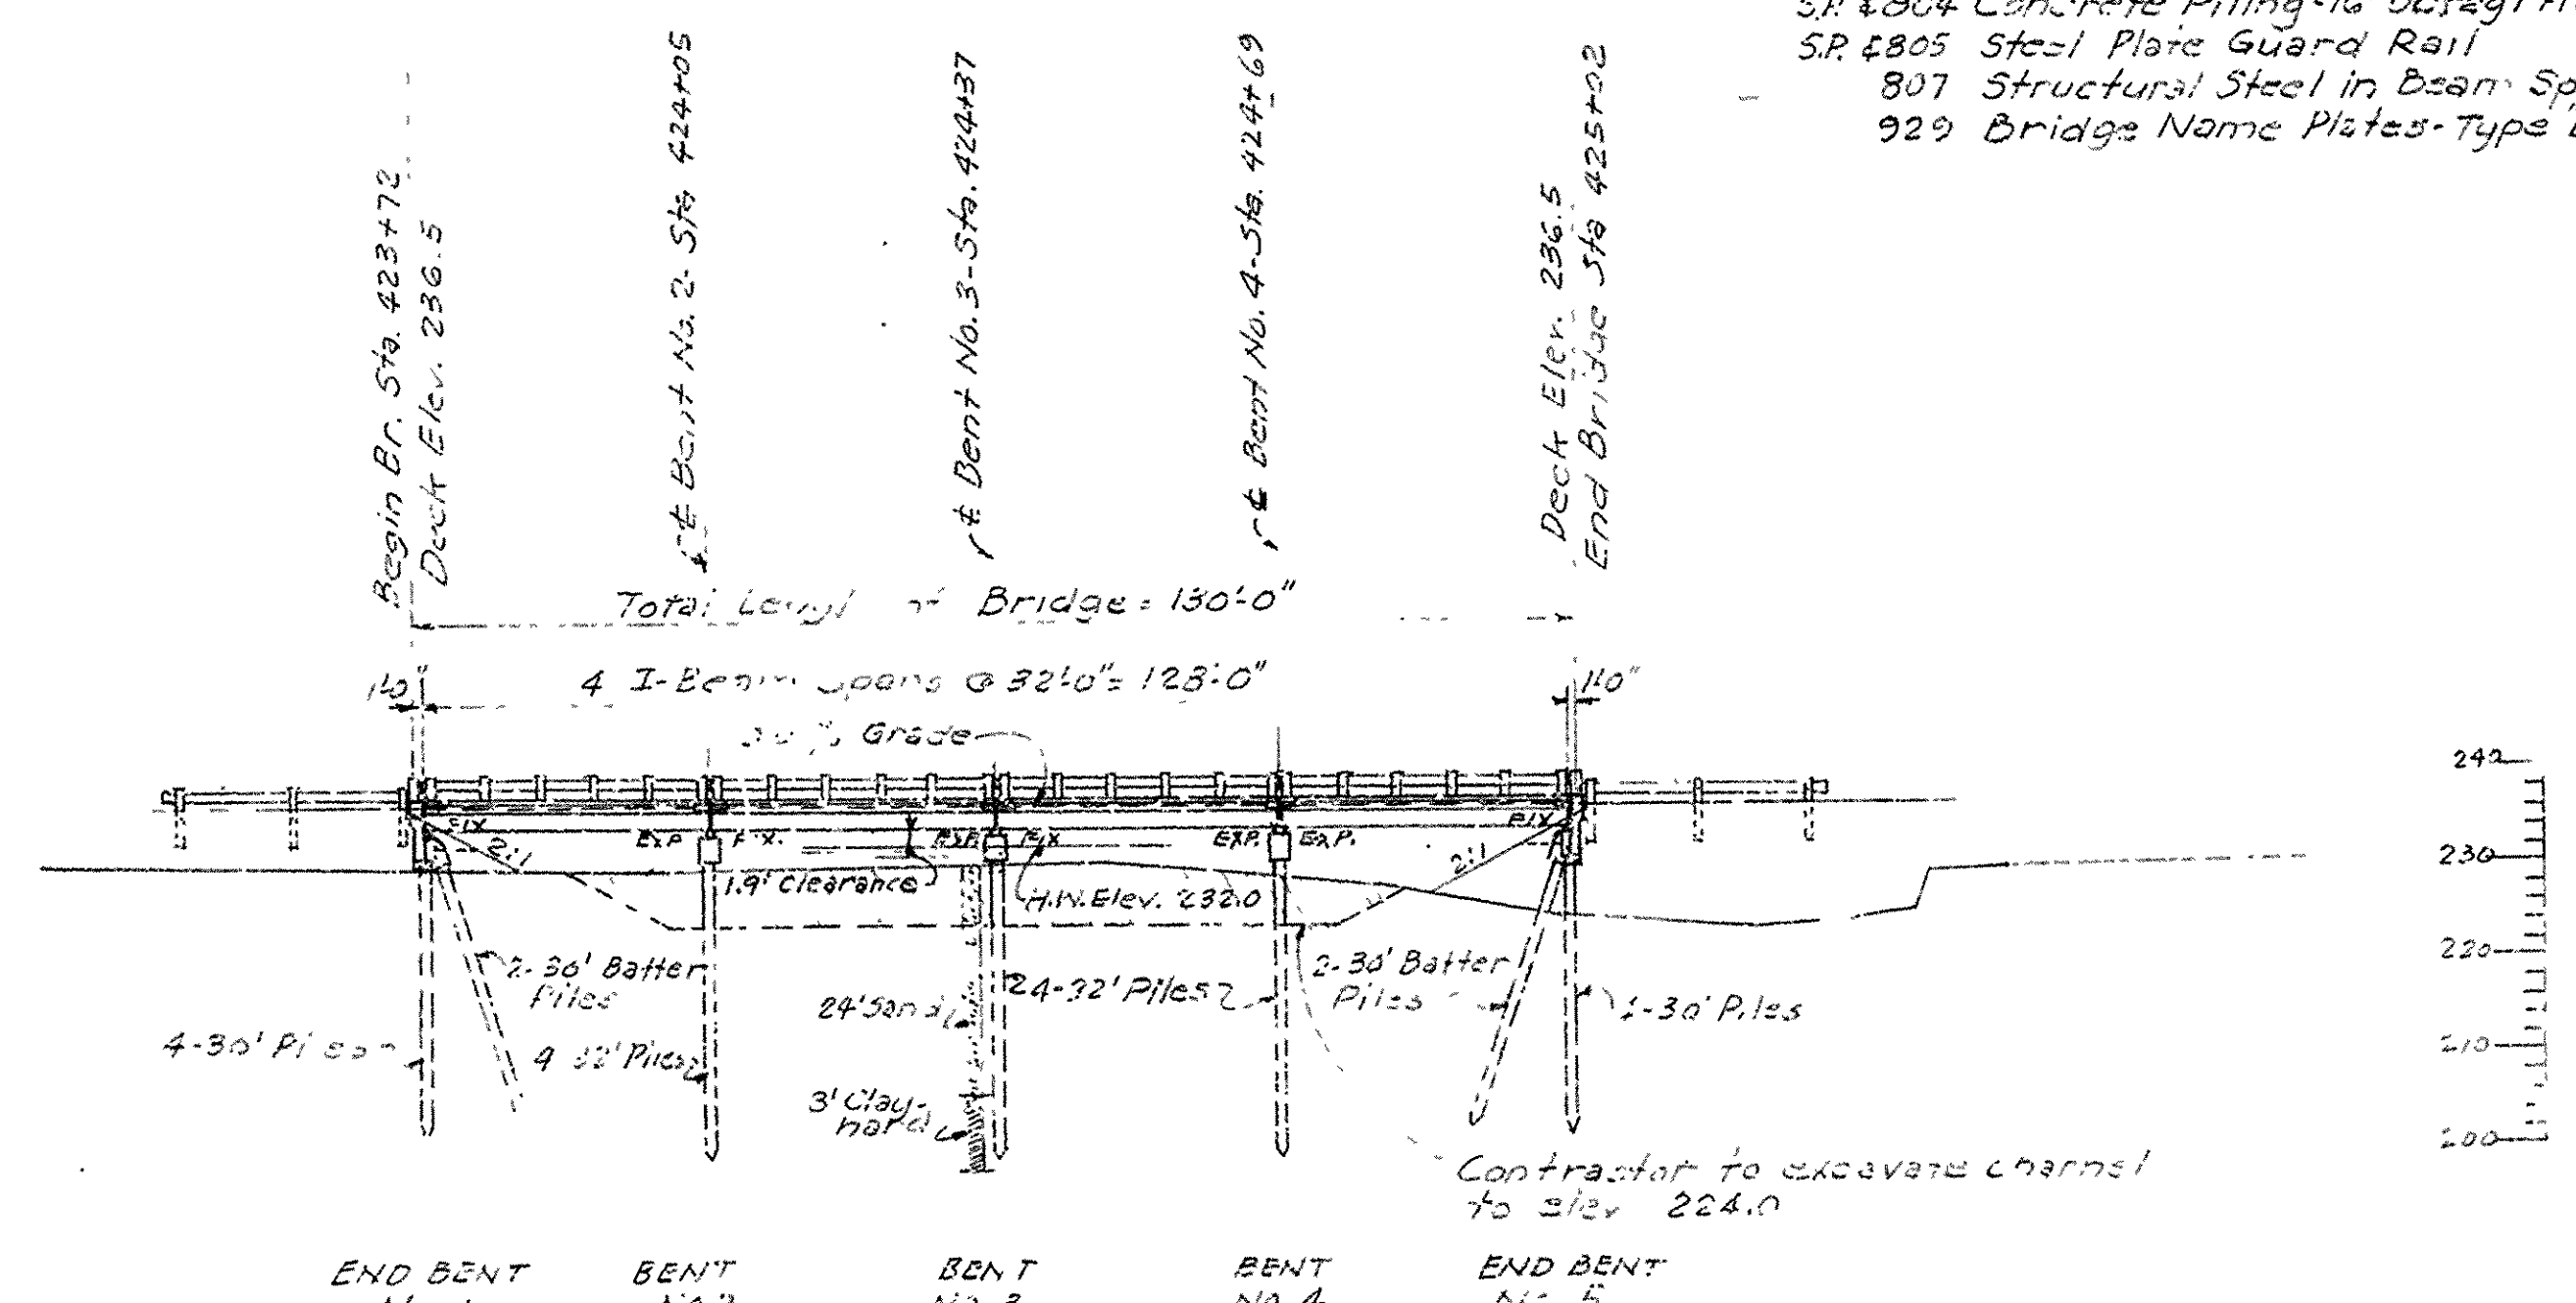 S.P. & 804 Concrete Piling-16"
S.P. & 805 Steel Plate Guard Rail
807 Structural Steel in Beam
929 Bridge Name Plates-Type
Begin Br. Sta. 423+72
Deck Elev. 236.5
℄ Bent No. 2- Sta 424+05
℄ Bent No. 3-Sta. 424+37
℄ Bent No. 4-Sta. 424+69
Deck Elev. 236.5
End Bridge Sta 425+02
Total Length of Bridge = 130'-0"
1'-0" 4 I-Beam Spans @ 32'-0" = 128'-0" 1'-0"
Grade
FIX EXP. FIX. EXP. FIX EXP. EXP. FIX
2:1 2:1
1.9' Clearance
H.W. Elev. 232.0
2-30' Batter
Piles
4-30' Piles
4 32' Piles
24' Sand
3' Clay-
hard
24-32' Piles
2-30' Batter
Piles
-30' Piles
Contractor to excavate channel
to elev 224.0
242
230
220
210
200
END BENT BENT BENT BENT END BENT
No. 2 No. 3 No. 4 No. 5